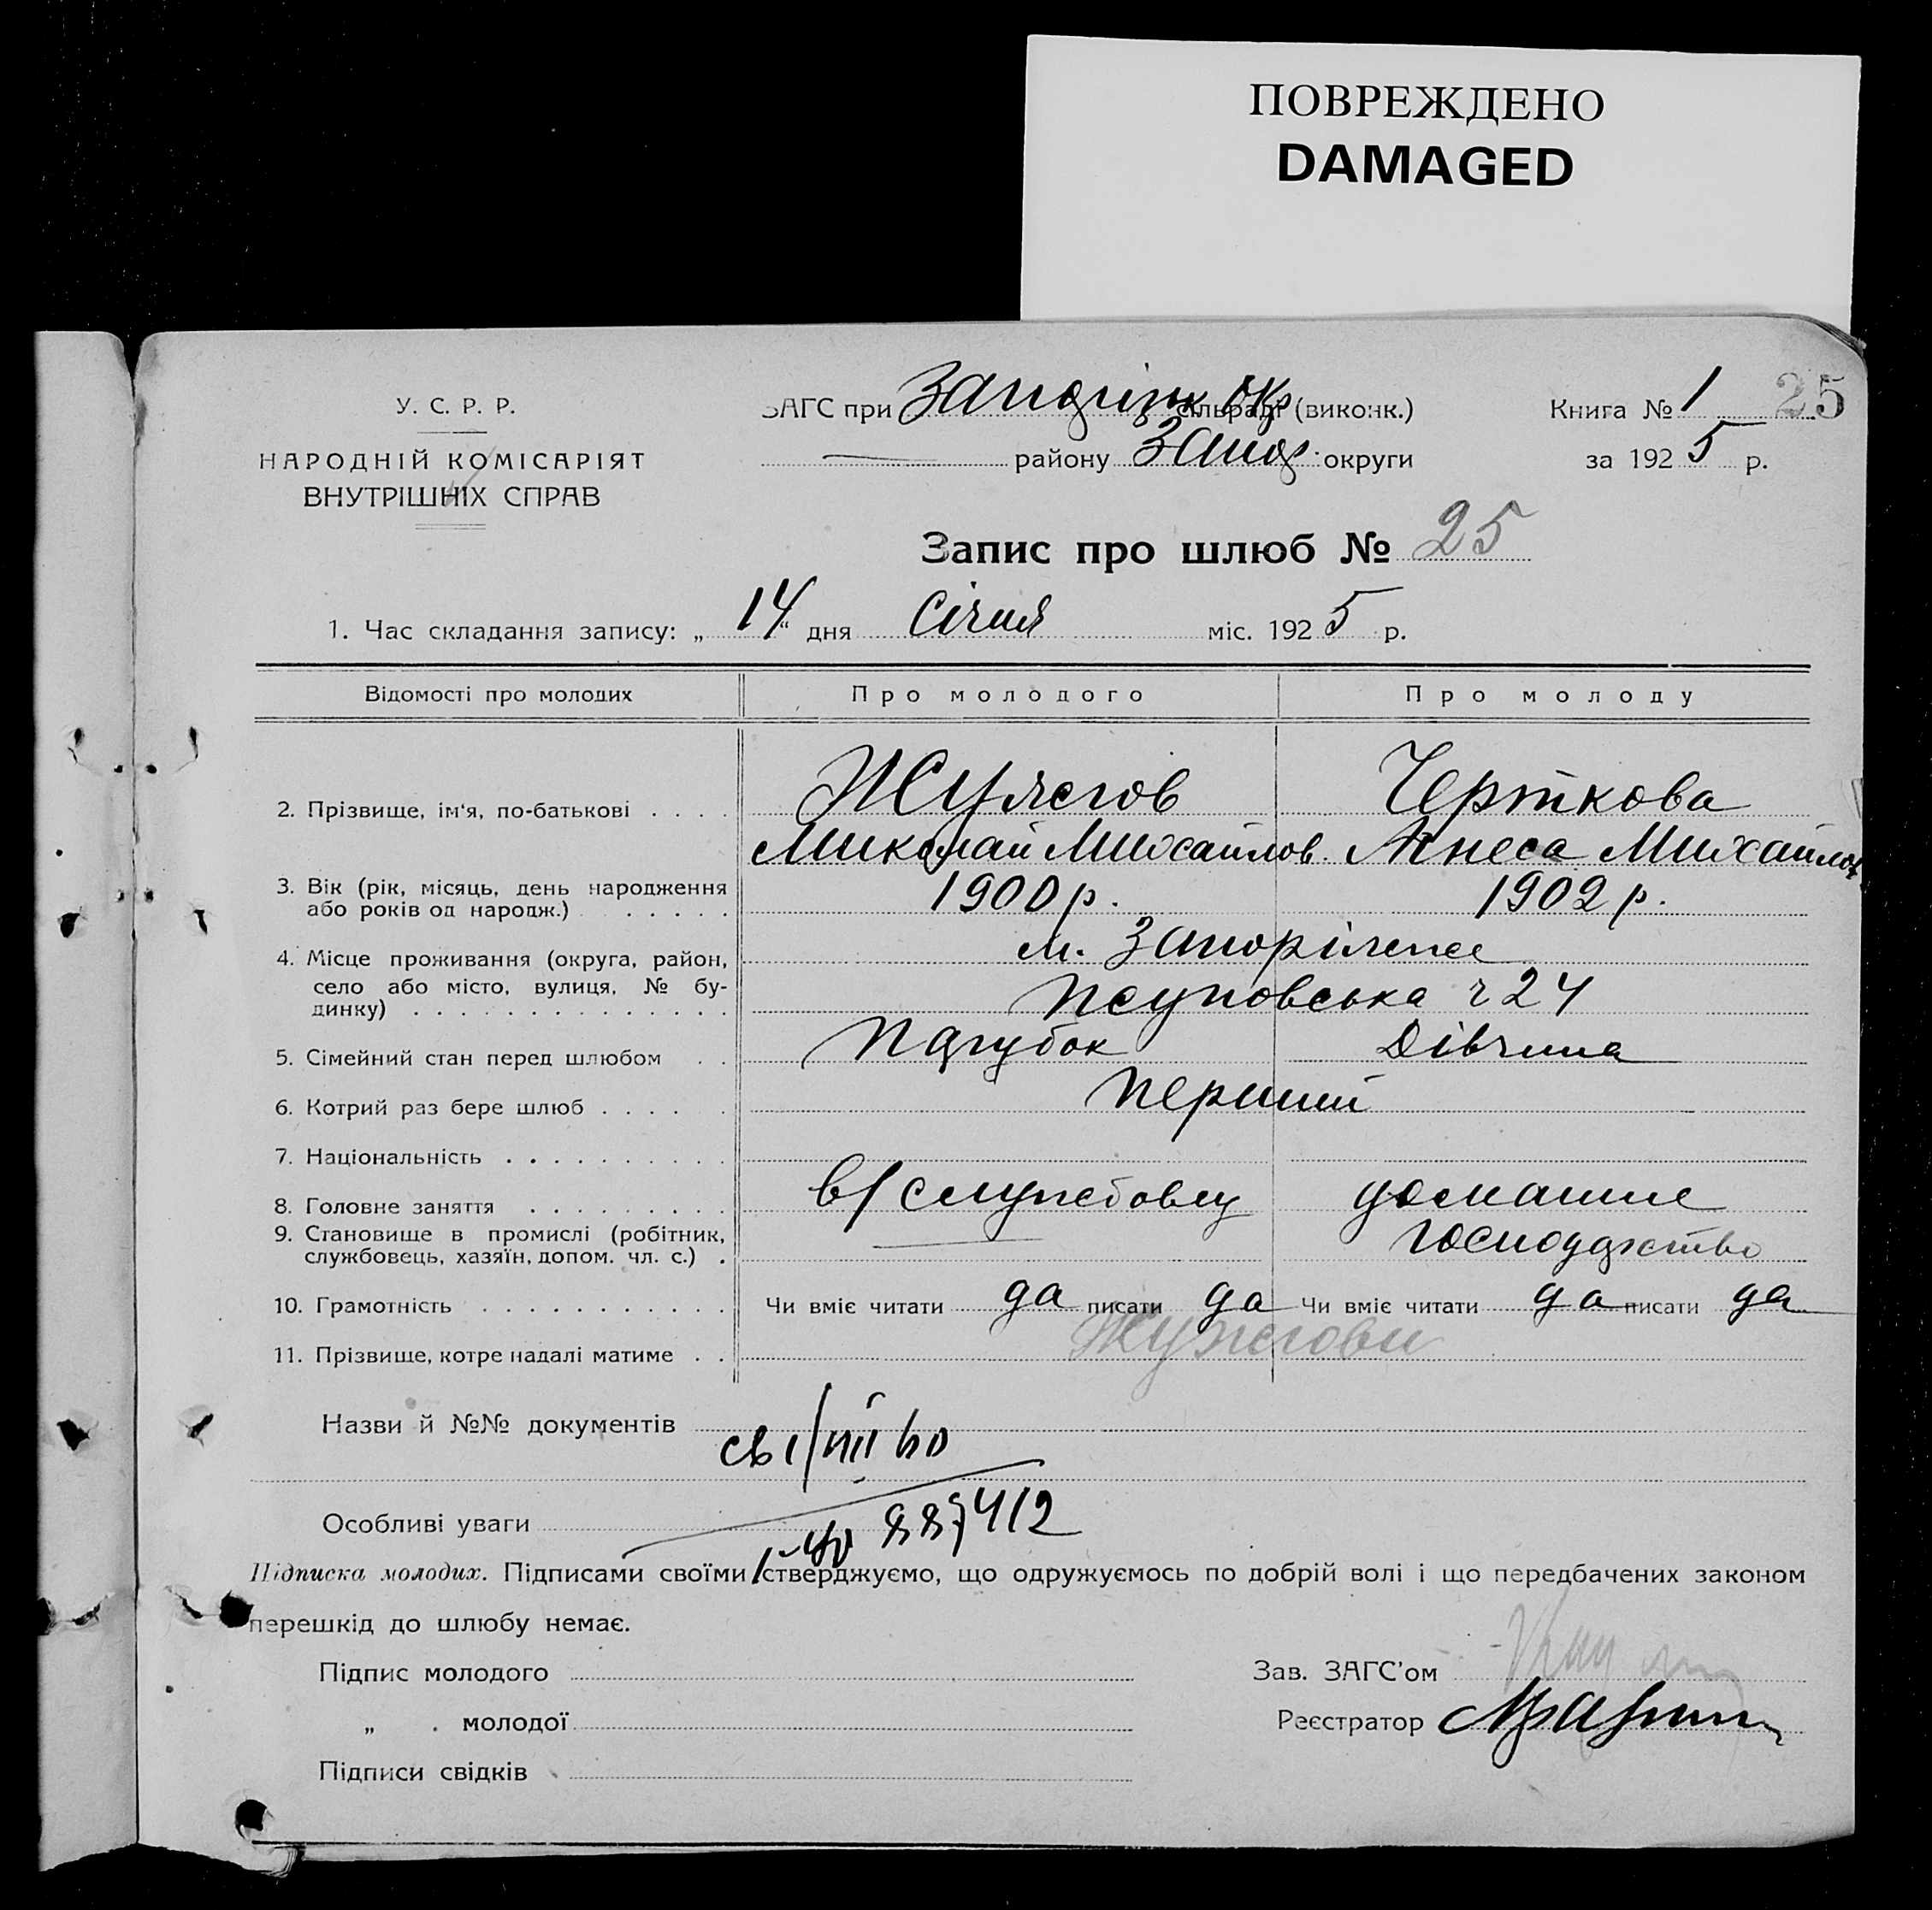 ПОВРЕЖДЕНО
DAMAGED
У. С. Р. Р.
НАРОДНІЙ КОМІСАРІЯТ
ВНУТРІШНІХ СПРАВ
ЗАГС при Окр сільраді (виконк.)
району Запор. округи
Книга № 1 25
за 1925 р.
Запис про шлюб № 25
1. Час складання запису: „ 14 “ дня Січня міс. 1925 р.
Відомості про молодих Про молодого Про молоду
2. Прізвище, ім‘я, по-батькові . . . . Черткова
Миколай Михайлов. Агнеса Михайлов.
3. Вік (рік, місяць, день народження 1900 р. 1902 р.
або років од народж.) . . . . .
4. Місце проживання (округа, район, м. Запоріжже
село або місто, вулиця, № бу- 24
динку) . . . . . . . . . . . . .
5. Сімейний стан перед шлюбом . . Парубок Дівчина
6. Котрий раз бере шлюб . . . . . Перший
7. Національність . . . . . . . . . .
8. Головне заняття . . . . . . . . . в/службовец домашнє
9. Становище в промислі (робітник, господарство
службовець, хазяїн, допом. чл. с.) .
10. Грамотність . . . . . . . . . . . Чи вміє читати да писати да Чи вміє читати да писати да
11. Прізвище, котре надалі матиме . .
Назви й №№ документів
Особливі уваги 887412
Підписка молодих. Підписами своїми стверджуємо, що одружуємось по добрій волі і що передбачених законом
перешкід до шлюбу немає.
Підпис молодого
„ . молодої
Підписи свідків
Зав. ЗАГС'ом
Реєстратор